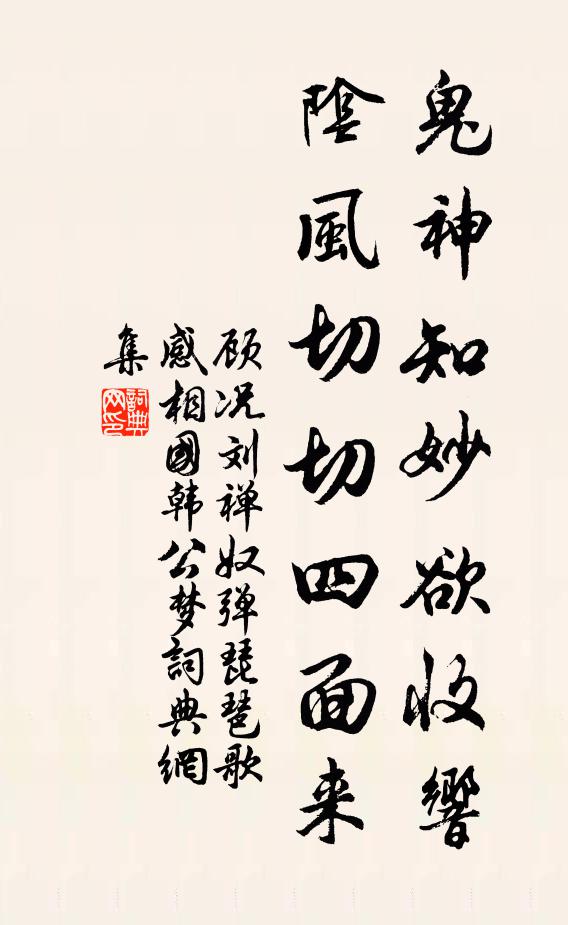 鬼神知妙欲收響
陰風切切四面来
顾况刘禅奴弹琵琶歌
感相國韩公梦詞典網
集
詞典
网印